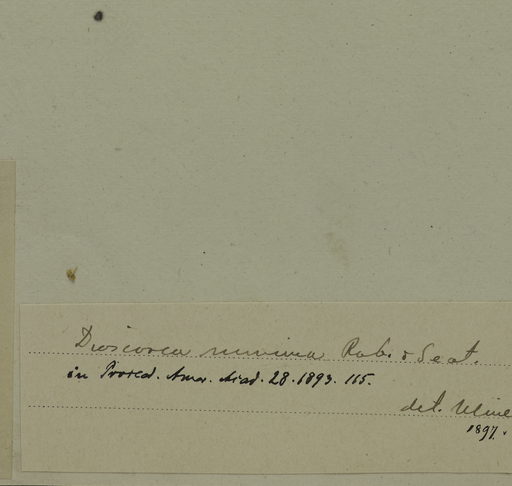 Dioscorea minima Rob. & Seat.
in Proced. Amer. Acad. 28. 1893. 115.
det. Uline
1897.